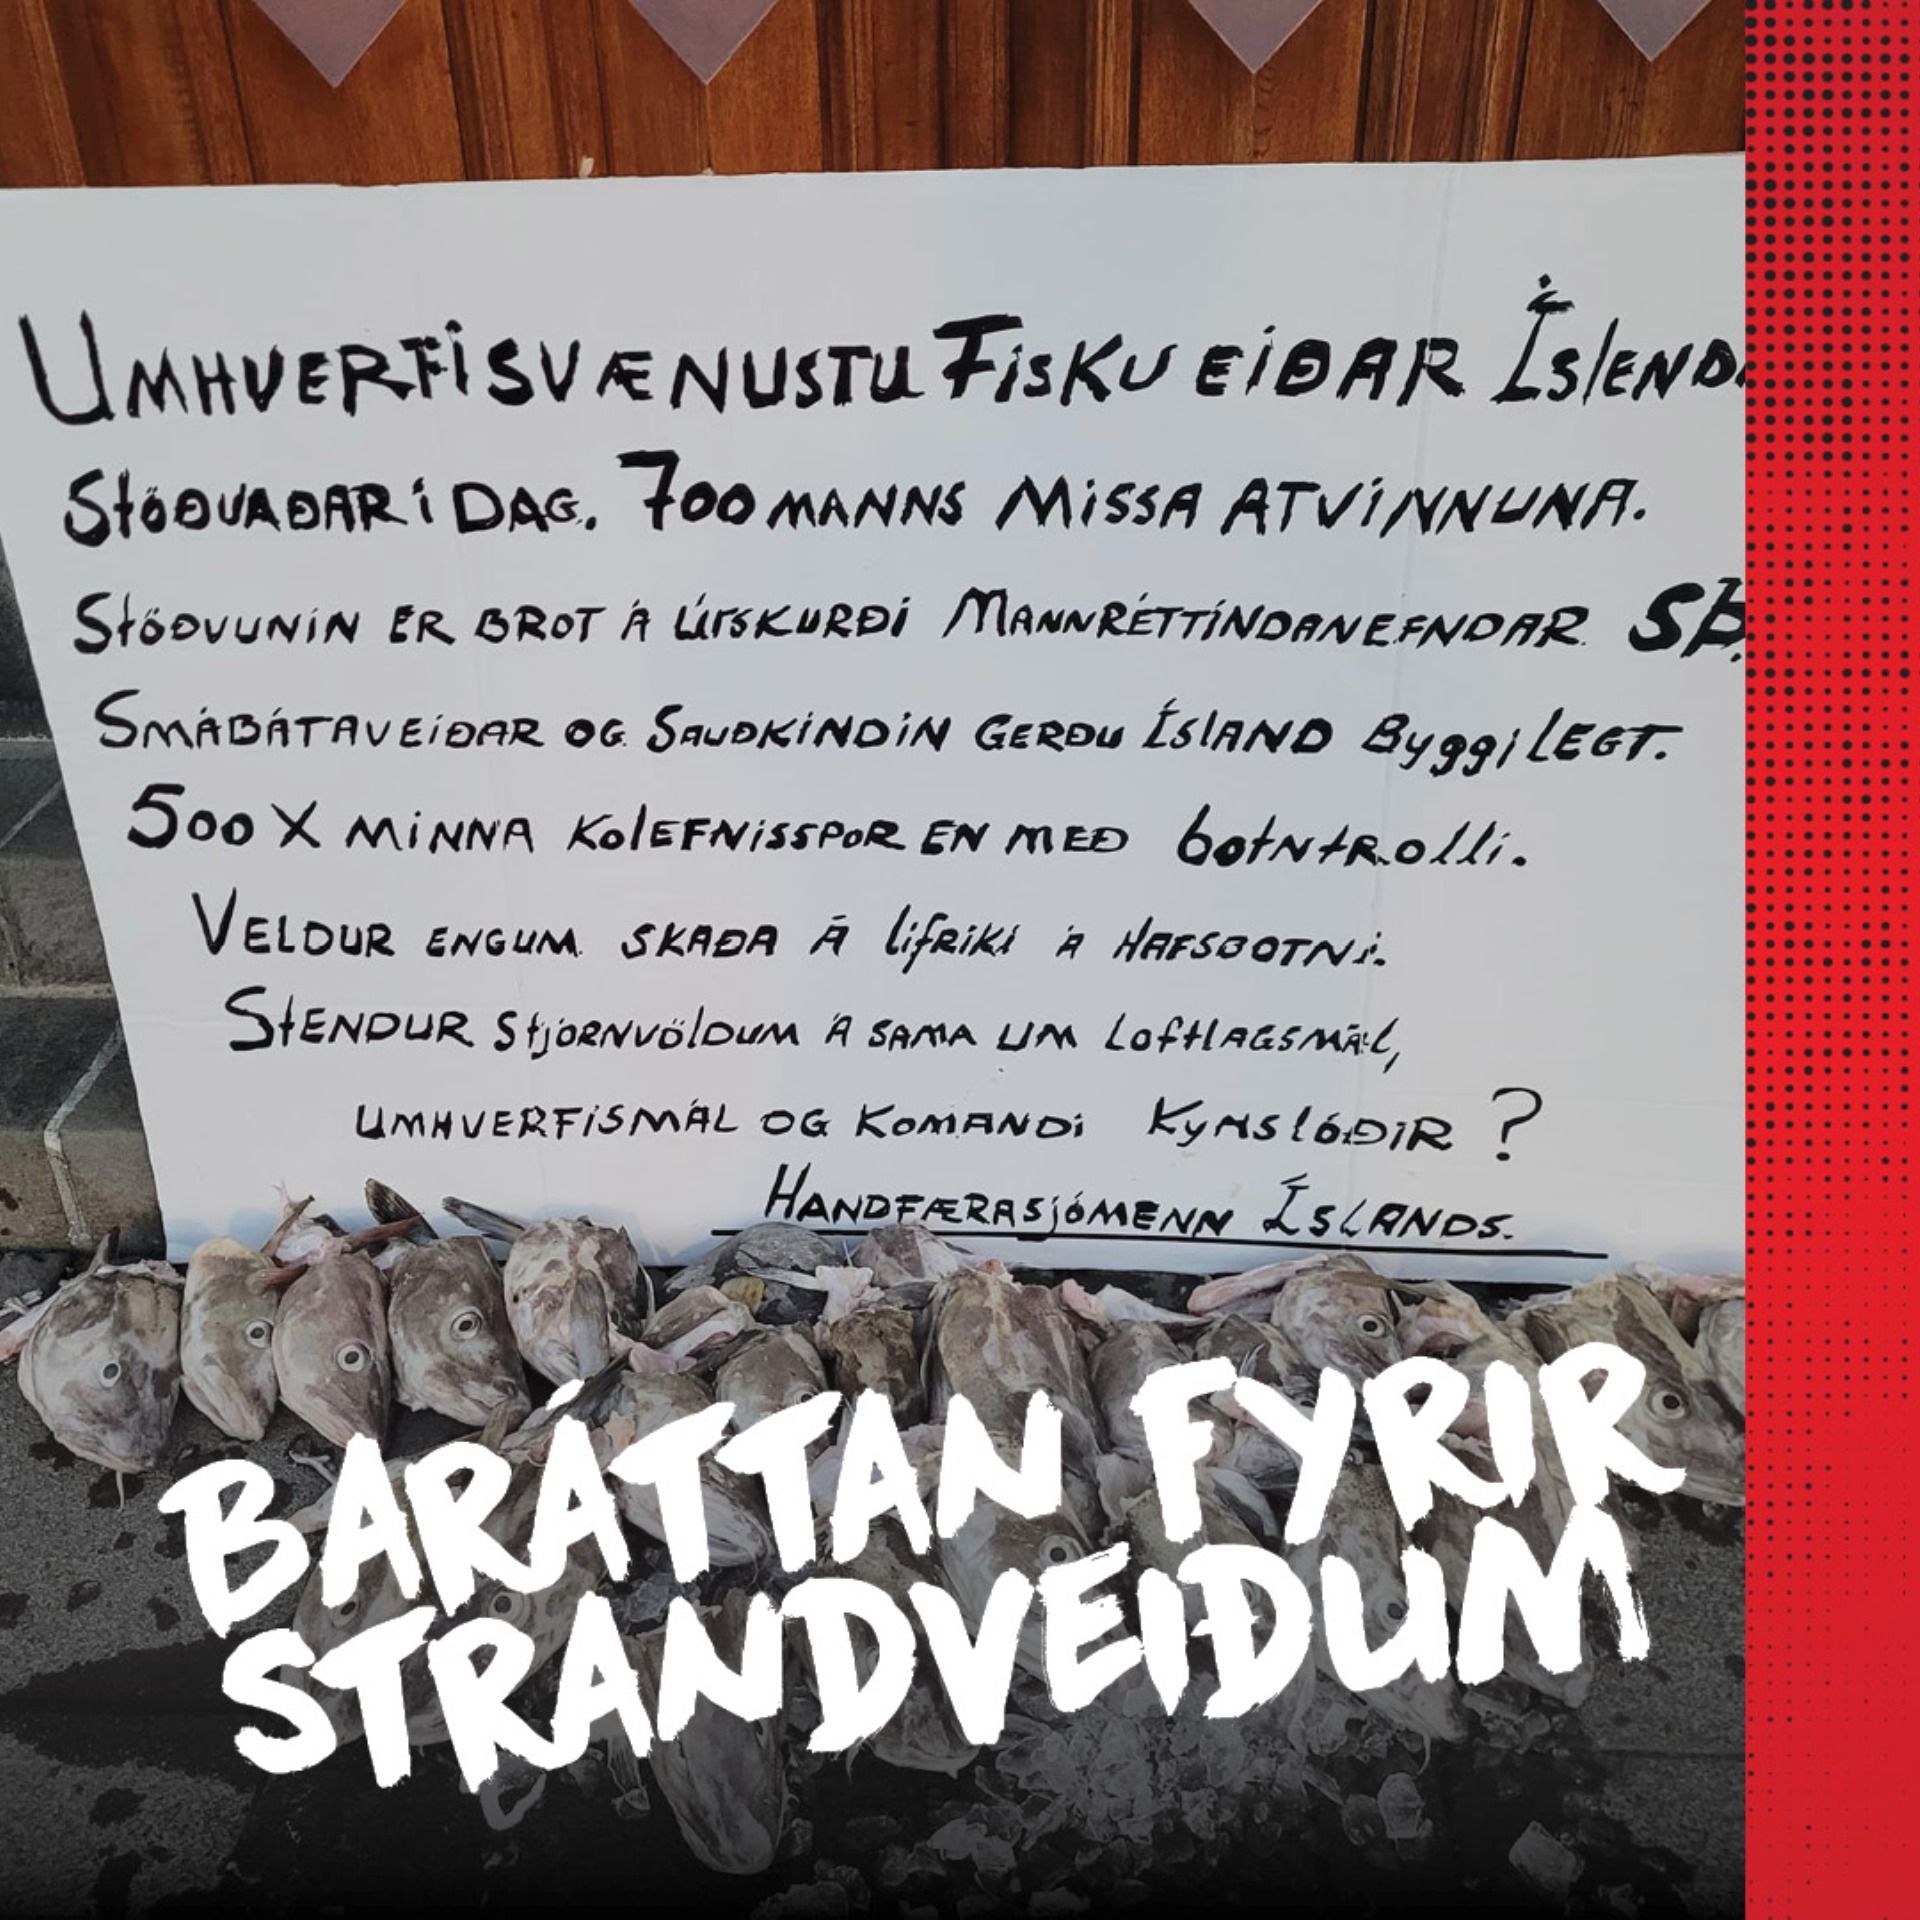 UMHVERFISVÆNUSTU FISKVEIÐAR ÍSLEND
STÖÐVAÐAR Í DAG. 700 MANNS MISSA ATVINNUNA.
STÖÐVUNIN ER BROT Á ÚRSKURÐI MANNRÉTTINDANEFNDAR SÞ.
SMÁBÁTAVEIÐAR OG SAUÐKINDIN GERÐU ÍSLAND BYGGILEGT.
500 X MINNA KOLEFNISSPOR EN MEÐ botntrolli.
VELDUR ENGUM SKAÐA Á lífRíKI Á HAFSBOTNI.
STENDUR STJÓRNVÖLDUM Á SAMA UM LOFTLAGSMÁL,
UMHVERFISMÁL OG KOMANDI KYNSLÓÐIR ?
HANDFÆRASJÓMENN ÍSLANDS.
BARÁTTAN FYRIR
STRANDVEIÐUM